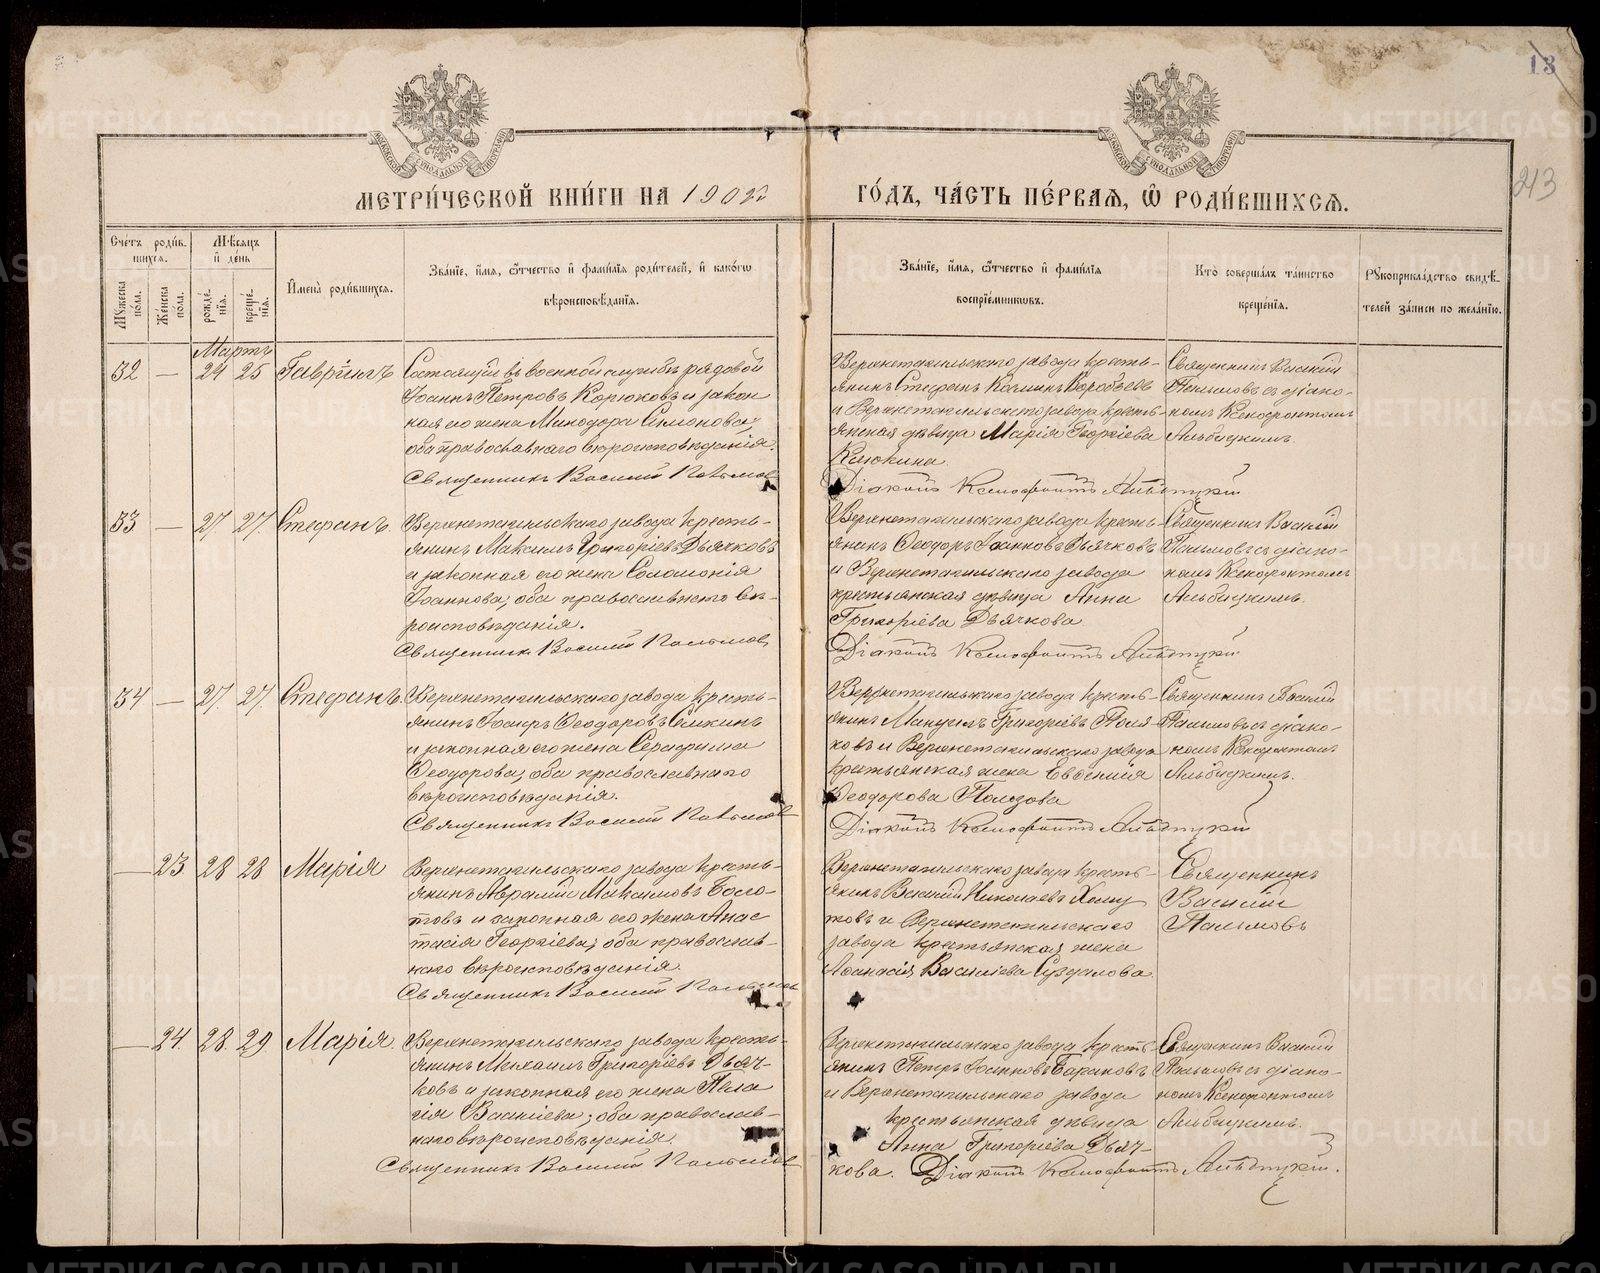 13
213
МЕТРИ́ЧЕСКОЙ КНИ́ГИ НА 1902
ГО́ДЪ, ЧА́СТЬ ПЕ́РВАЯ, Ѡ҆ РОДИ́ВШИХСѦ.
Сче́тъ роди́в-
шихсѧ.
Мꙋ́жеска по́ла.
Же́нска по́ла.
Мѣ́сѧцъ
и҆ де́нь
рожде́нїѧ.
креще́нїѧ.
И҆мена̀ роди́вшихсѧ.
Зва́нїе, и҆́мѧ, ѻ҆́тчество и҆ фами́лїѧ роди́телей, и҆ како́гѡ
вѣроисповѣ́данїѧ.
Зва́нїе, и҆́мѧ, ѻ҆́тчество и҆ фами́лїѧ
воспрїе́мникѡвъ.
Кто̀ соверша́лъ та́инство
креще́нїѧ.
Рꙋкоприкла́дство свидѣ́-
телей за́писи по жела́нїю.
Мартъ
32 — 24 25 Гавріилъ
Состоящій въ военной службѣ рядовой
Іоаннъ Петровъ Корюковъ и закон
ная его жена Минодора Симонова
оба православнаго вѣроисповѣданія.
Священникъ Василій Пальмовъ
Верхнетагильскаго завода кресть-
янинъ Стефанъ Козминъ Воробьевъ
и Верхнетагильскаго завода кресть-
янская дѣвица Марія Георгіева
Клюкина
Діаконъ Ксенофонтъ Альбицкій
Священникъ Василій
Пальмовъ съ діако-
номъ Ксенофонтомъ
Альбицкимъ.
33 — 27. 27. Стефанъ.
Верхнетагильскаго завода кресть-
янинъ Максимъ Григоріевъ Дьячковъ
и законная его жена Соломонія
Іоаннова; оба православнаго вѣ-
роисповѣданія.
Священникъ Василій Пальмовъ
Верхнетагильскаго завода кресть-
янинъ Ѳеодоръ Іоанновъ Дьячковъ
и Верхнетагильскаго завода
крестьянская дѣвица Анна
Григоріева Дьячкова
Діаконъ Ксенофонтъ Альбицкій
Священникъ Василій
Пальмовъ съ діако-
номъ Ксенофонтомъ
Альбицкимъ.
34 — 27. 27. Стефанъ.
Верхнетагильскаго завода кресть-
янинъ Іосифъ Ѳеодоровъ
и законная его жена Серафима
Ѳеодорова; оба православнаго
вѣроисповѣданія.
Священникъ Василій Пальмовъ
Верхнетагильскаго завода кресть-
янинъ Григоріевъ
ковъ и Верхнетагильскаго завода
крестьянская жена Евгенія
Ѳеодорова
Діаконъ Ксенофонтъ Альбицкій
Священникъ Василій
Пальмовъ съ діако-
номъ Ксенофонтомъ
Альбицкимъ.
— 23 28 28 Марія
Верхнетагильскаго завода кресть-
янинъ Авраамъ Максимовъ Боло-
товъ и законная его жена Анас
тасія Георгіева; оба православ-
наго вѣроисповѣданія.
Священникъ Василій Пальмовъ
Верхнетагильскаго завода кресть-
янинъ Василій Николаевъ Хому
товъ и Верхнетагильскаго
завода крестьянская жена
Аѳанасія Василіева Суздалова
Священникъ
Василій
Пальмовъ
— 24. 28. 29 Марія.
Верхнетагильскаго завода кресть-
янинъ Михаилъ Григоріевъ Дьяч-
ковъ и законная его жена Пела
гія Василіева; оба православ-
наго вѣроисповѣданія.
Священникъ Василій Пальмовъ
Верхнетагильскаго завода кресть-
янинъ Петръ Іоанновъ Барановъ
и Верхнетагильскаго завода
крестьянская дѣвица
Анна Григоріева Дьяч-
кова. Діаконъ Ксенофонтъ Альбицкій.
Священникъ Василій
Пальмовъ съ діако-
номъ Ксенофонтомъ
Альбицкимъ.
METRIKI.GASO-URAL.RU